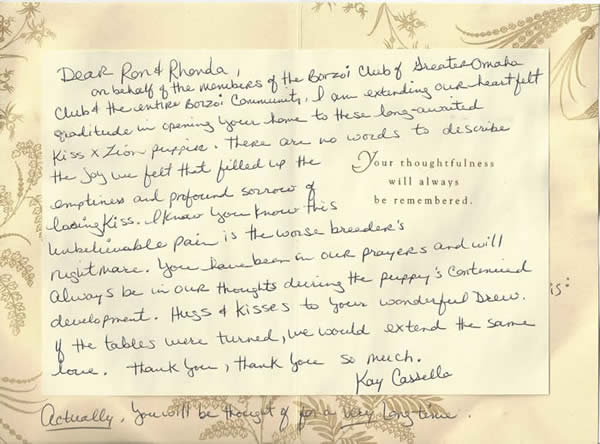 Dear Ron & Rhonda,
on behalf of the members of the Borzoi Club of Greater Omaha
Club & the entire Borzoi Community, I am extending our heartfelt
gratitude in opening your home to these long-awaited
Kiss x Zion puppies. There are no words to describe
the joy we felt that filled up the
emptiness and profound sorrow of
losing Kiss. I know you know this
unbelievable pain is the worse breeder's
nightmare. You have been in our prayers and will
always be in our thoughts during the puppy's continued
development. Hugs & kisses to your wonderful Drew.
If the tables were turned, we would extend the same
love. Thank you, thank you so much.
Kay Cassella
Your thoughtfulness
will always
be remembered.
is:
Actually, you will be thought of for a very long time.